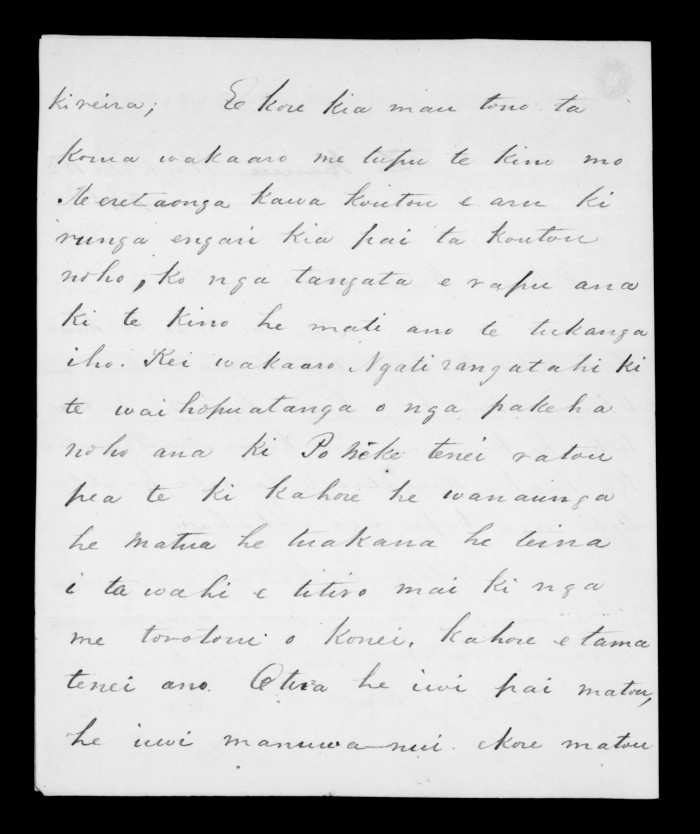 ki reira; E kore kia mau tono ta
korua wakaaro me tupu te kino mo
te eretaonga kawa koutou e aru ki
runga engari kia pai ta koutou
noho, ko nga tangata e rapu ana
ki te kino he mati ano te tukanga
iho. Kei wakaaro Ngatirangatahi ki
te wai hopuatanga o nga pakeha
noho ana ki Poneke tenei ratou
pea te ki kahore he wanaunga
he matua he tuakana he teina
i ta wahi e titiro mai ki nga
me torotoru o konei. kahore e tama
tenei ano. Otira he iwi pai matou,
he iwi manuwa-nui. ekore matou